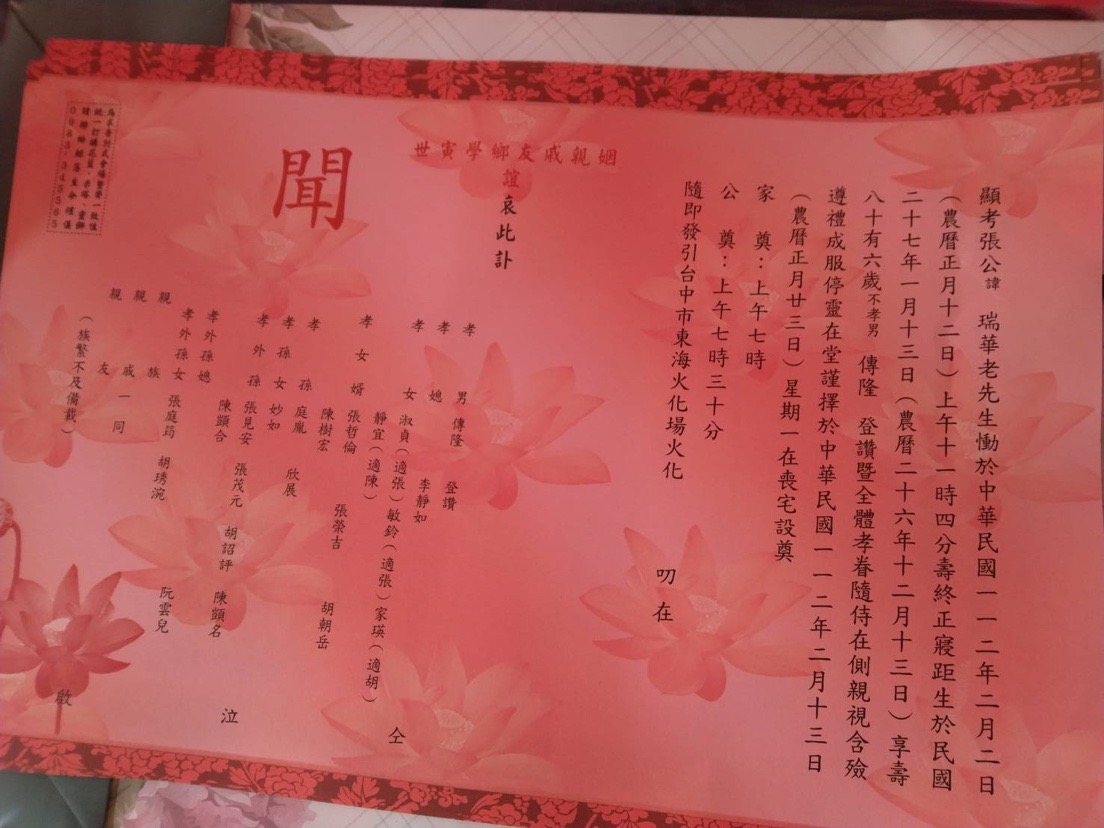 顯考張公諱　瑞華老先生慟於中華民國一一二年二月二日
（農曆正月十二日）上午十一時四分壽終正寢距生於民國
二十七年一月十三日（農曆二十六年十二月十三日）享壽
八十有六歲不孝男　傳隆　登讚暨全體孝眷隨侍在側親視含殮
遵禮成服停靈在堂謹擇於中華民國一一二年二月十三日
（農曆正月廿三日）星期一在喪宅設奠
家　奠：上午七時
公　奠：上午七時三十分
隨即發引台中市東海火化場火化
叨在
姻親戚友鄉學寅世
誼哀此訃
聞
孝男　傳隆　登讚
孝媳　李靜如
孝女　淑貞（適張）敏鈴（適張）家瑛（適胡）
靜宜（適陳）
仝
孝女婿　張哲倫　張榮吉　胡朝岳
陳樹宏
孝孫　庭胤　欣展
孝孫女　妙如
孝外孫　張見安　張茂元　胡詔評　陳顗名
陳顗合
泣
孝外孫媳　阮雲兒
孝外孫女　張庭筠　胡琇涴
親族
親戚一同
親友
（族繁不及備載）
啟